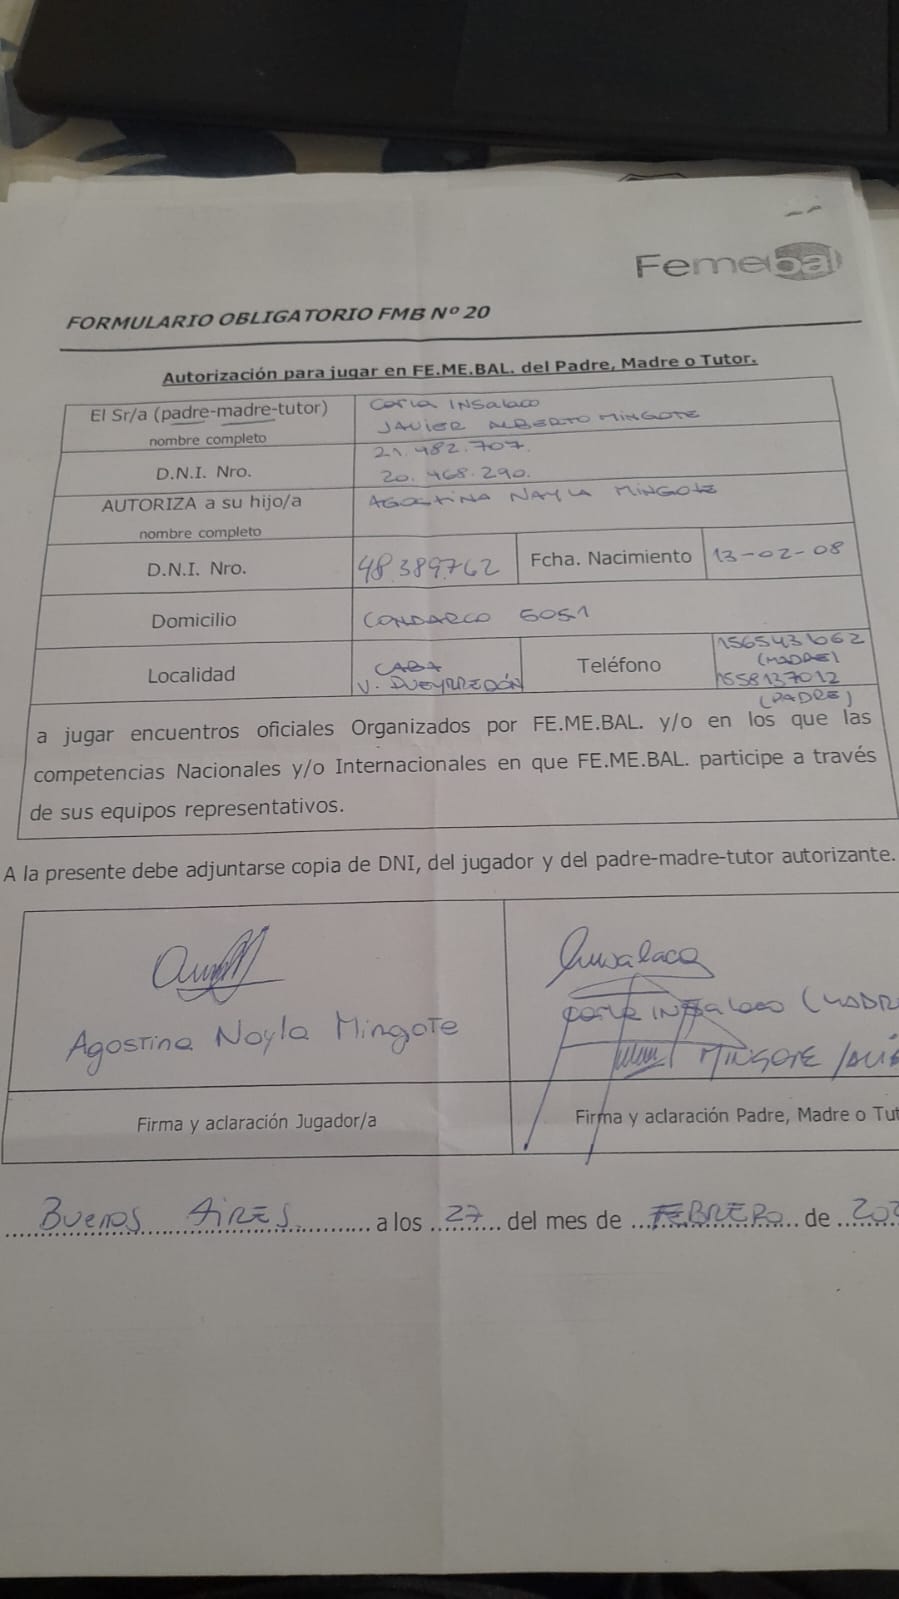 Femebal
FORMULARIO OBLIGATORIO FMB Nº 20
Autorización para jugar en FE.ME.BAL. del Padre, Madre o Tutor.
El Sr/a (padre-madre-tutor)
nombre completo
Carla INSalaco
JAVIER ALBERTO MINGOTE
D.N.I. Nro.
21.982.707.
20.468.290.
AUTORIZA a su hijo/a
nombre completo
AGOSTINA NAYLA MINGOTE
D.N.I. Nro.
48.389.762
Fcha. Nacimiento
13-02-08
Domicilio
CONDARCO 5051
Localidad
CABA
V. PUEYRREDÓN
Teléfono
1565431062
(MADRE)
1558137012
(PADRE)
a jugar encuentros oficiales Organizados por FE.ME.BAL. y/o en los que las
competencias Nacionales y/o Internacionales en que FE.ME.BAL. participe a través
de sus equipos representativos.
A la presente debe adjuntarse copia de DNI, del jugador y del padre-madre-tutor autorizante.
Agostina Nayla Mingote
Insalaco
Carla INSalaco (MADR
MINGOTE JAVI
Firma y aclaración Jugador/a
Firma y aclaración Padre, Madre o Tut
Buenos AIRES a los 27 del mes de FEBRERO de 202